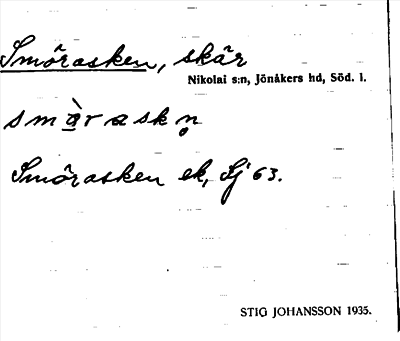 Smörasken, skär
Nikolai s:n, Jönåkers hd, Söd. l.
smὰ̱raskn̥
Smörasken ek, Sj 63.
STIG JOHANSSON 1935.